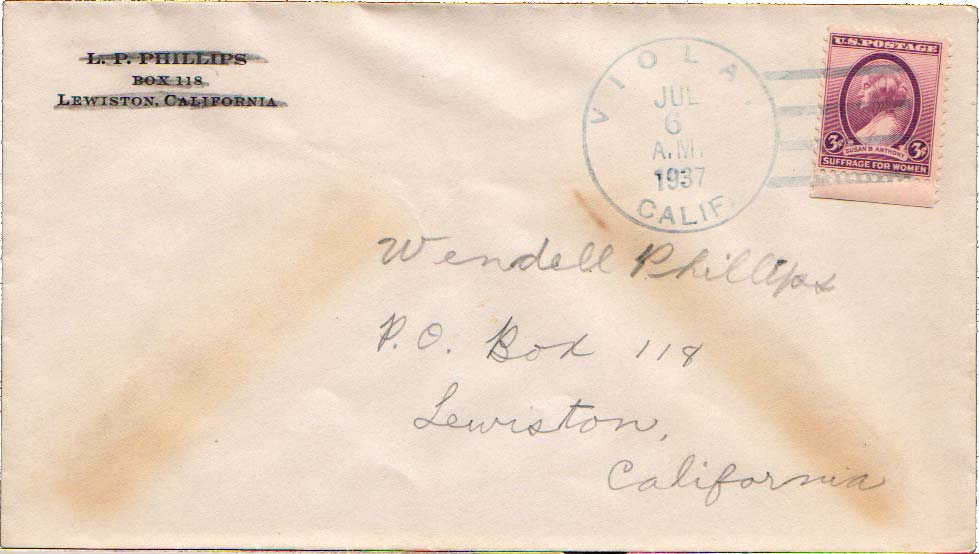 L. P. PHILLIPS
BOX 118
LEWISTON, CALIFORNIA
VIOLA
JUL
6
A.M.
1937
CALIF.
U.S. POSTAGE
3¢ SUSAN B. ANTHONY 3¢
SUFFRAGE FOR WOMEN
Wendell Phillips
P.O. Box 118
Lewiston,
California